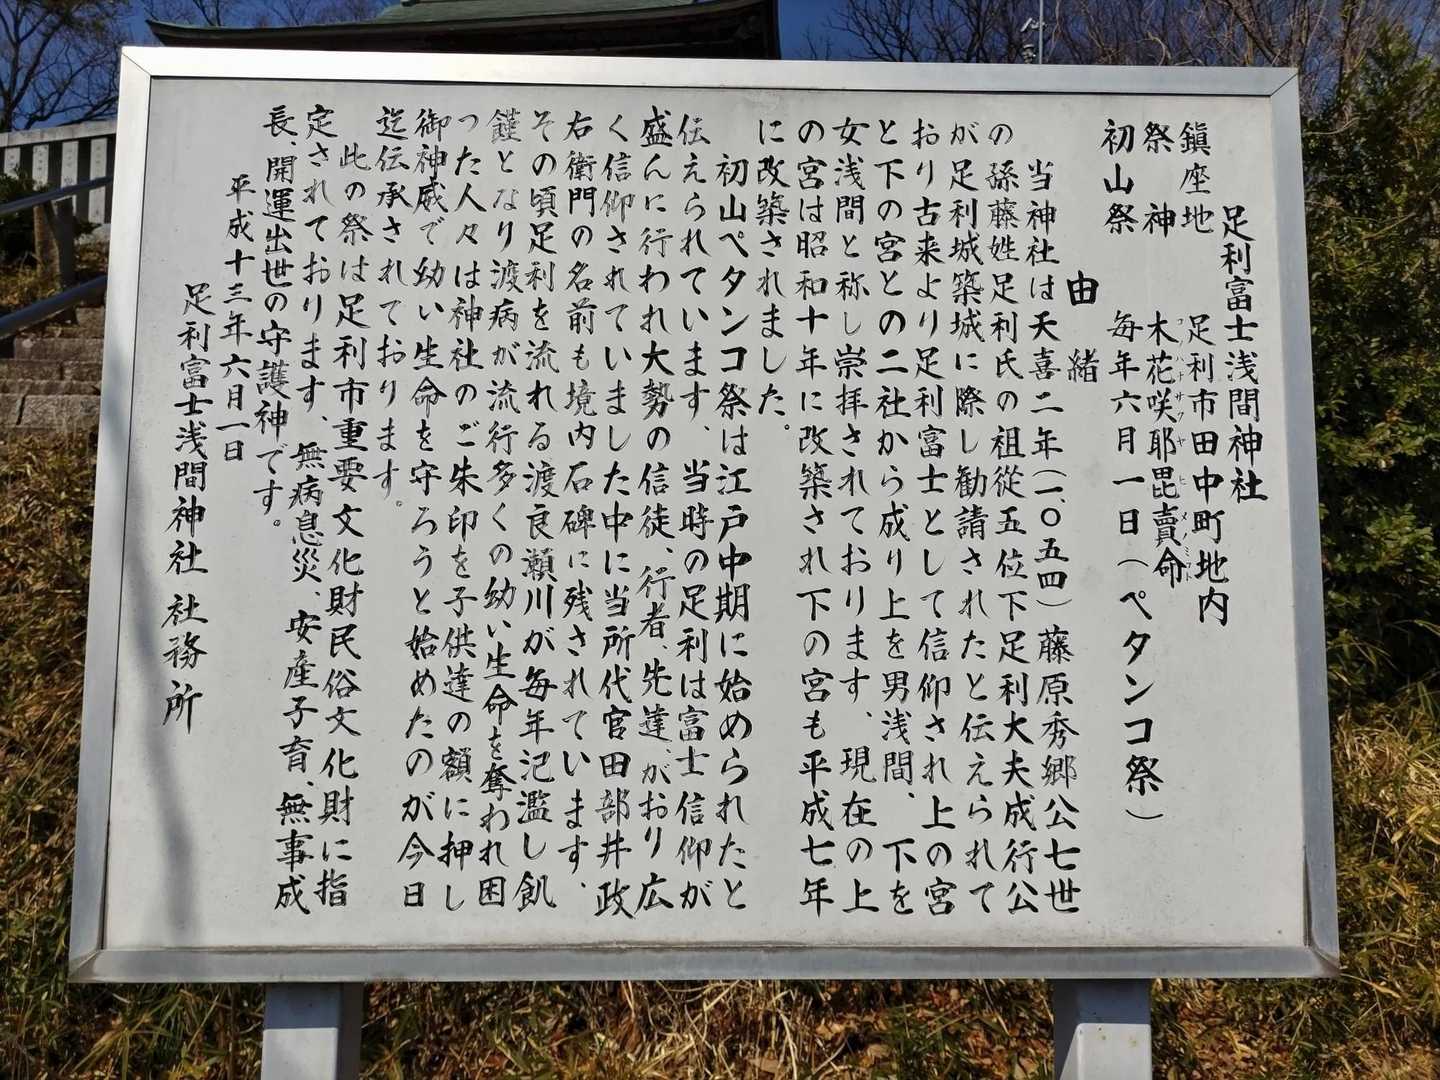 足利富士浅間神社
鎮座地　足利市田中町地内
祭神　木花咲耶毘賣命
初山祭　毎年六月一日（ペタンコ祭）
由緒
当神社は天喜二年（一、〇五四）藤原秀郷公七世
の孫藤姓足利氏の祖従五位下足利大夫成行公
が足利城築城に際し勧請されたと伝えられて
おり古来より足利富士として信仰され上の宮
と下の宮との二社から成り上を男浅間、下を
女浅間と称し崇拝されております、現在の上
の宮は昭和十年に改築され下の宮も平成七年
に改築されました。
初山ペタンコ祭は江戸中期に始められたと
伝えられています、当時の足利は富士信仰が
盛んに行われ大勢の信徒、行者、先達、がおり広
く信仰されていました中に当所代官田部井政
右衛門の名前も境内石碑に残されています、
その頃足利を流れる渡良瀬川が毎年氾濫し飢
饉となり渡病が流行多くの幼い生命を奪われ困
った人々は神社のご朱印を子供達の額に押し
御神威で幼い生命を守ろうと始めたのが今日
迄伝承されております。
此の祭は足利市重要文化財民俗文化財に指
定されております、無病息災、安産子育、無事成
長、開運出世の守護神です。
平成十三年六月一日
足利富士浅間神社 社務所